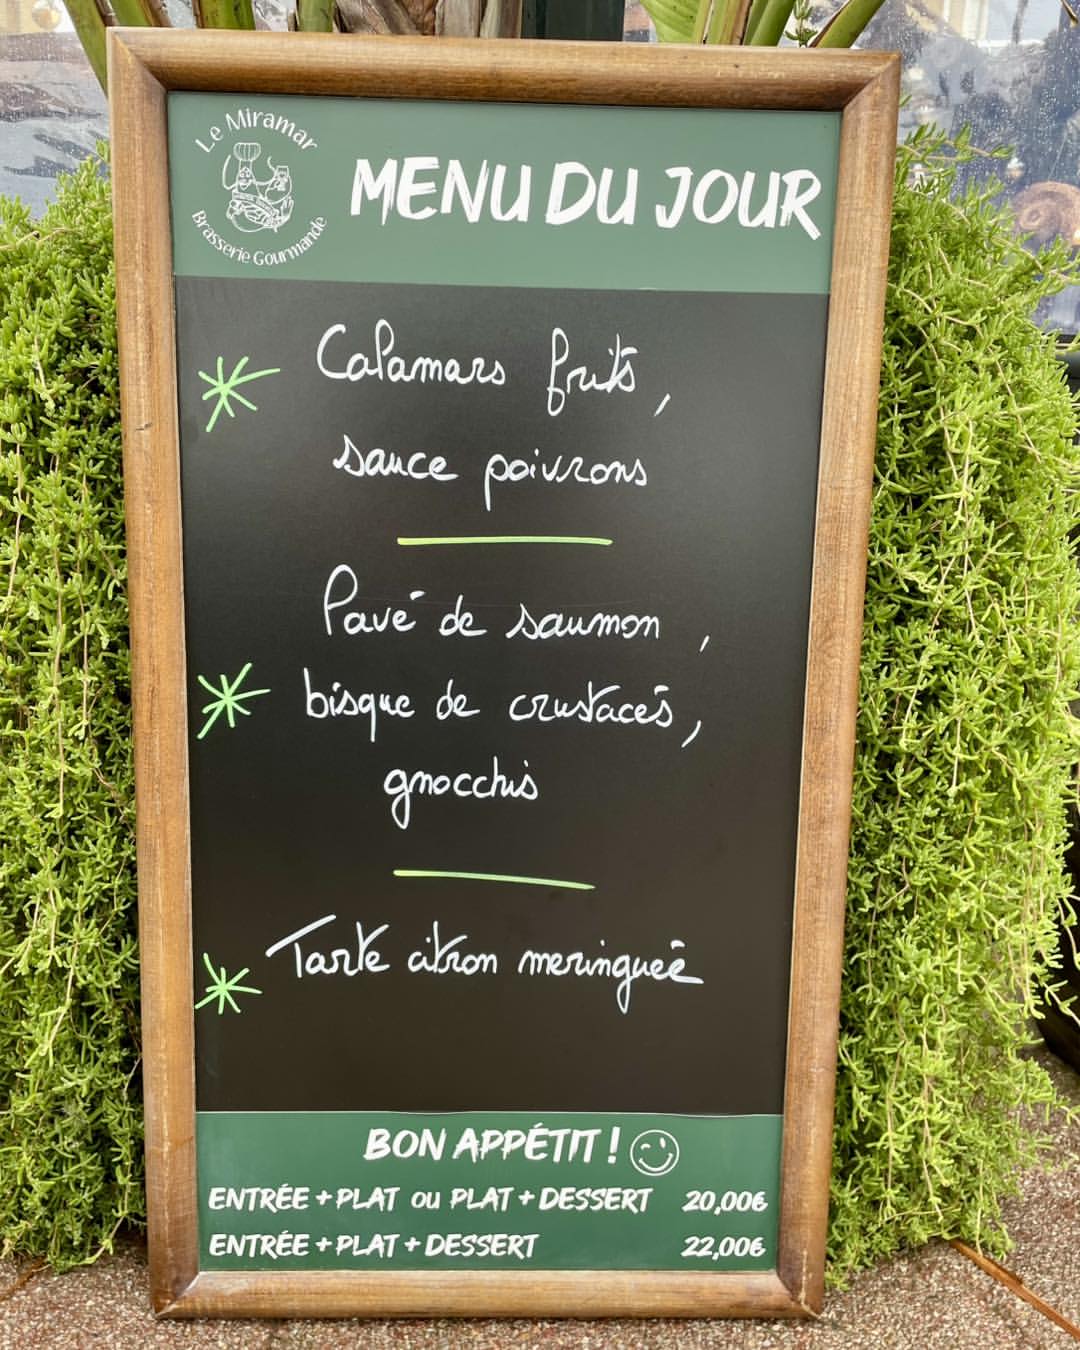 Le Miramar
Brasserie Gourmande
MENU DU JOUR
Calamars frits,
sauce poivrons
Pavé de saumon,
bisque de crustacés,
gnocchis
Tarte citron meringuée
BON APPÉTIT !
ENTRÉE + PLAT OU PLAT + DESSERT 20,00€
ENTRÉE + PLAT + DESSERT 22,00€